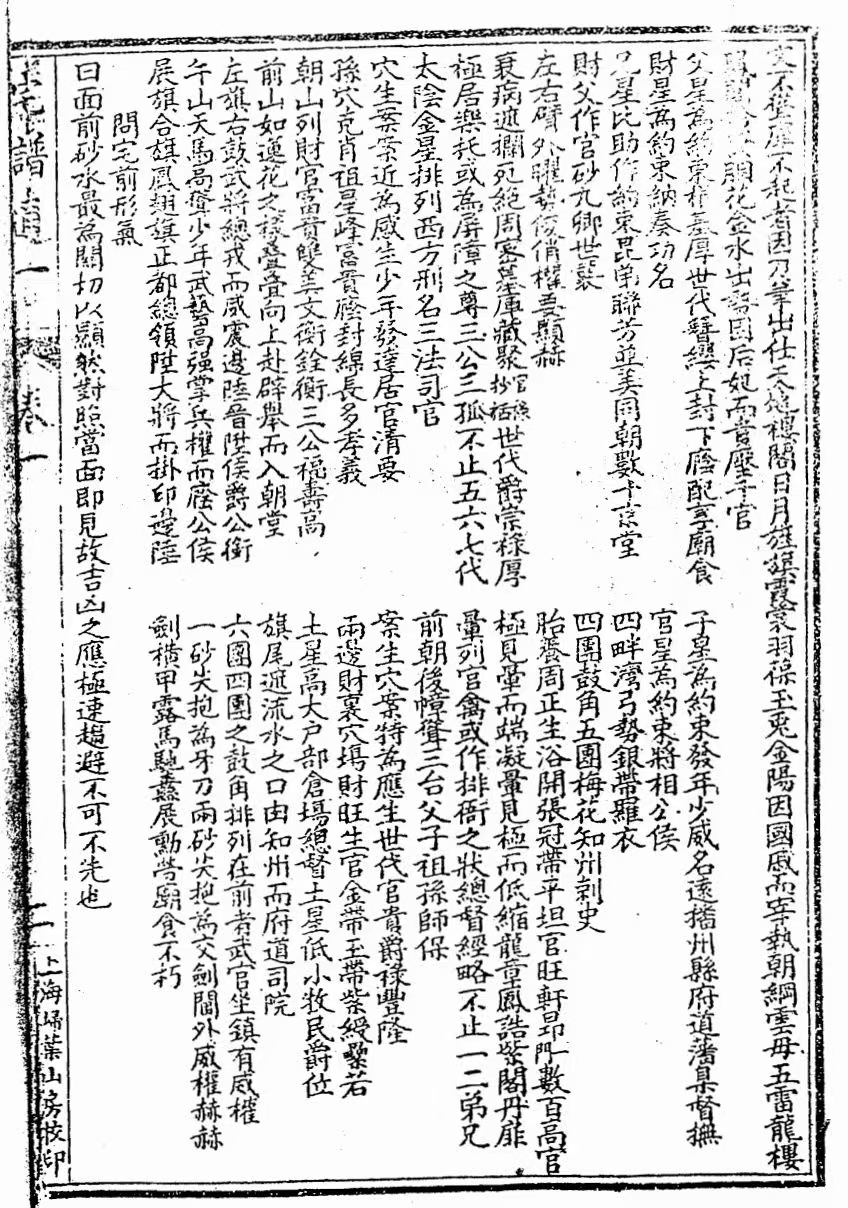 文不登科不起者因刀筆出仕天池樓閣日月旌旗霞裳羽葆玉兎金陽因國戚而宰執朝綱雲母五雷龍樓
胭花金水出勢國后妃而貴壓千官
父星為約束根基厚世代簪纓上封下廕配享廟食
子星為約束發年少威名遠播州縣府道藩臬督撫
財星為約束納奏功名
官星為約束將相公侯
兄星比助作約束昆弟聯芳並美同朝數十京堂
四畔灣弓勢銀帶羅衣
財父作官砂九卿世襲
四團鼓角五團梅花知州刺史
左右臂外曜勢俊俏權要顯赫
胎養周正生浴開張冠帶平坦官旺軒昂門數百高官
衰病遮攔死絕周密墓庫藏聚世代爵崇祿厚
極見暈而端凝暈見極而低縮龍章鳳誥紫閣丹扉
極居樂托或為屏障之尊三公三孤不止五六七代
暈列官禽或作排衙之狀總督經略不止一二弟兄
太陰金星排列西方刑名三法司官
前朝後幛聳三台父子祖孫師保
穴生案案近為感生少年發達居官清要
案生穴案特為應生世代官貴爵祿豐隆
孫穴克肖祖星峰富貴廕封綿長多孝義
兩邊財裹穴場財旺生官金帶玉帶紫綬縈若
朝山列財官富貴雙美文衡銓衡三公穩壽高
土星高大戶部倉場總督土星低小牧民爵位
前山如蓮花之樣疊疊向上赴辟舉而入朝堂
旗尾遮流水之口由知州而府道司院
左旗右鼓武將總戎而威震邊陲晉陞侯爵公銜
六團四團之鼓角排列在前者武官坐鎮有威權
午山天馬高聳少年武藝高强掌兵權而廕公侯
一砂尖抱為牙刀兩砂尖抱為交劍閫外威權赫赫
展旗合旗鳳翅旗正都總領陞大將而掛印邊陲
劍橫甲露馬馳纛展勳勞廟食不朽
問宅前形氣
曰面前砂水最為關切以顯然對照當面即見故吉凶之應極速趨避不可不先也
譜 卷一
二 上海埽葉山房校印